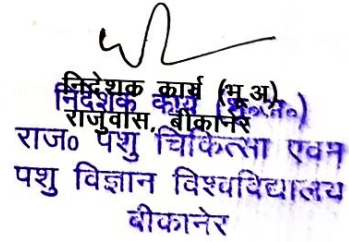 निदेशक कार्य (भू.अ)
राजुवास, बीकानेर
निदेशक कार्य (भू०स०)
राज० पशु चिकित्सा एवम
पशु विज्ञान विश्वविद्यालय
बीकानेर